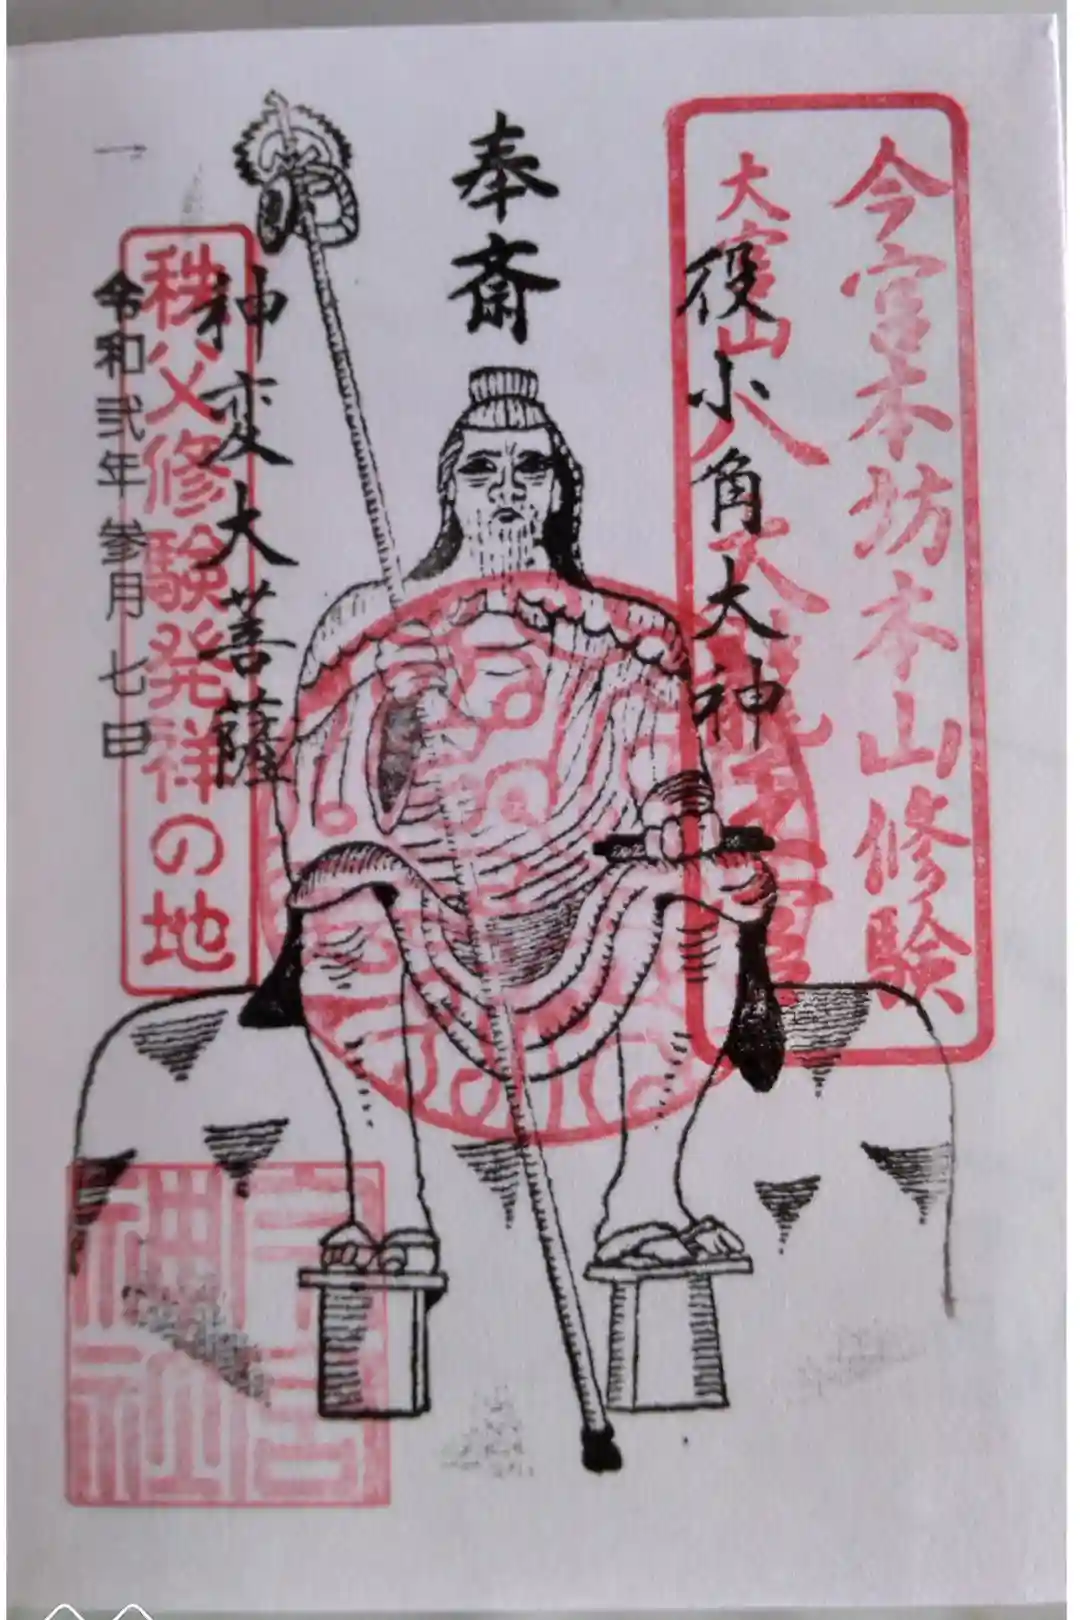 今宮本坊本山修験
大宮山八大龍王宮
役小角大神
奉斎
神変大菩薩
秩父修験発祥の地
令和弐年参月七日
今宮
神社